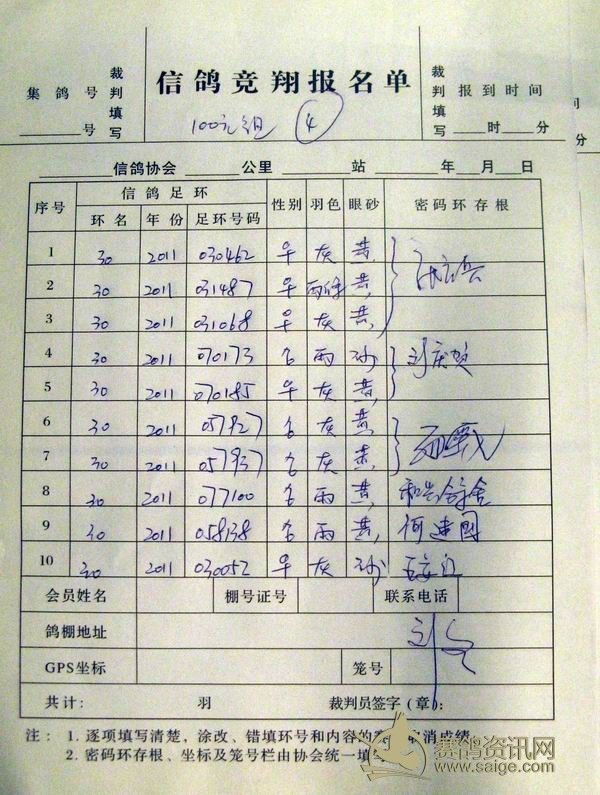 集鸽号
______号
裁判填写
信鸽竞翔报名单
100元组 ④
裁判填写
报到时间
____时____分
间
分
______信鸽协会 ______公里 ______站 ____年____月____日
序号 信鸽足环 性别 羽色 眼砂 密码环存根
环名 年份 足环号码
1 30 2011 030462 灰 黄
2 30 2011 031487 黄
3 30 2011 031068 灰 黄
4 30 2011 070173 雨 砂 刘庆贺
5 30 2011 070185 灰 黄
6 30 2011 057927 灰 黄
7 30 2011 057937 灰 黄
8 30 2011 077100 雨 黄
9 30 2011 058138 雨 黄 何建国
10 30 2011 030052 灰 砂
会员姓名 棚号证号 联系电话
鸽棚地址
GPS坐标 笼号
共计: 羽 裁判员签字(章):
注: 1. 逐项填写清楚,涂改、错填环号和内容的 消成绩。
2. 密码环存根、坐标及笼号栏由协会统一填
赛鸽资讯网
www.saige.com